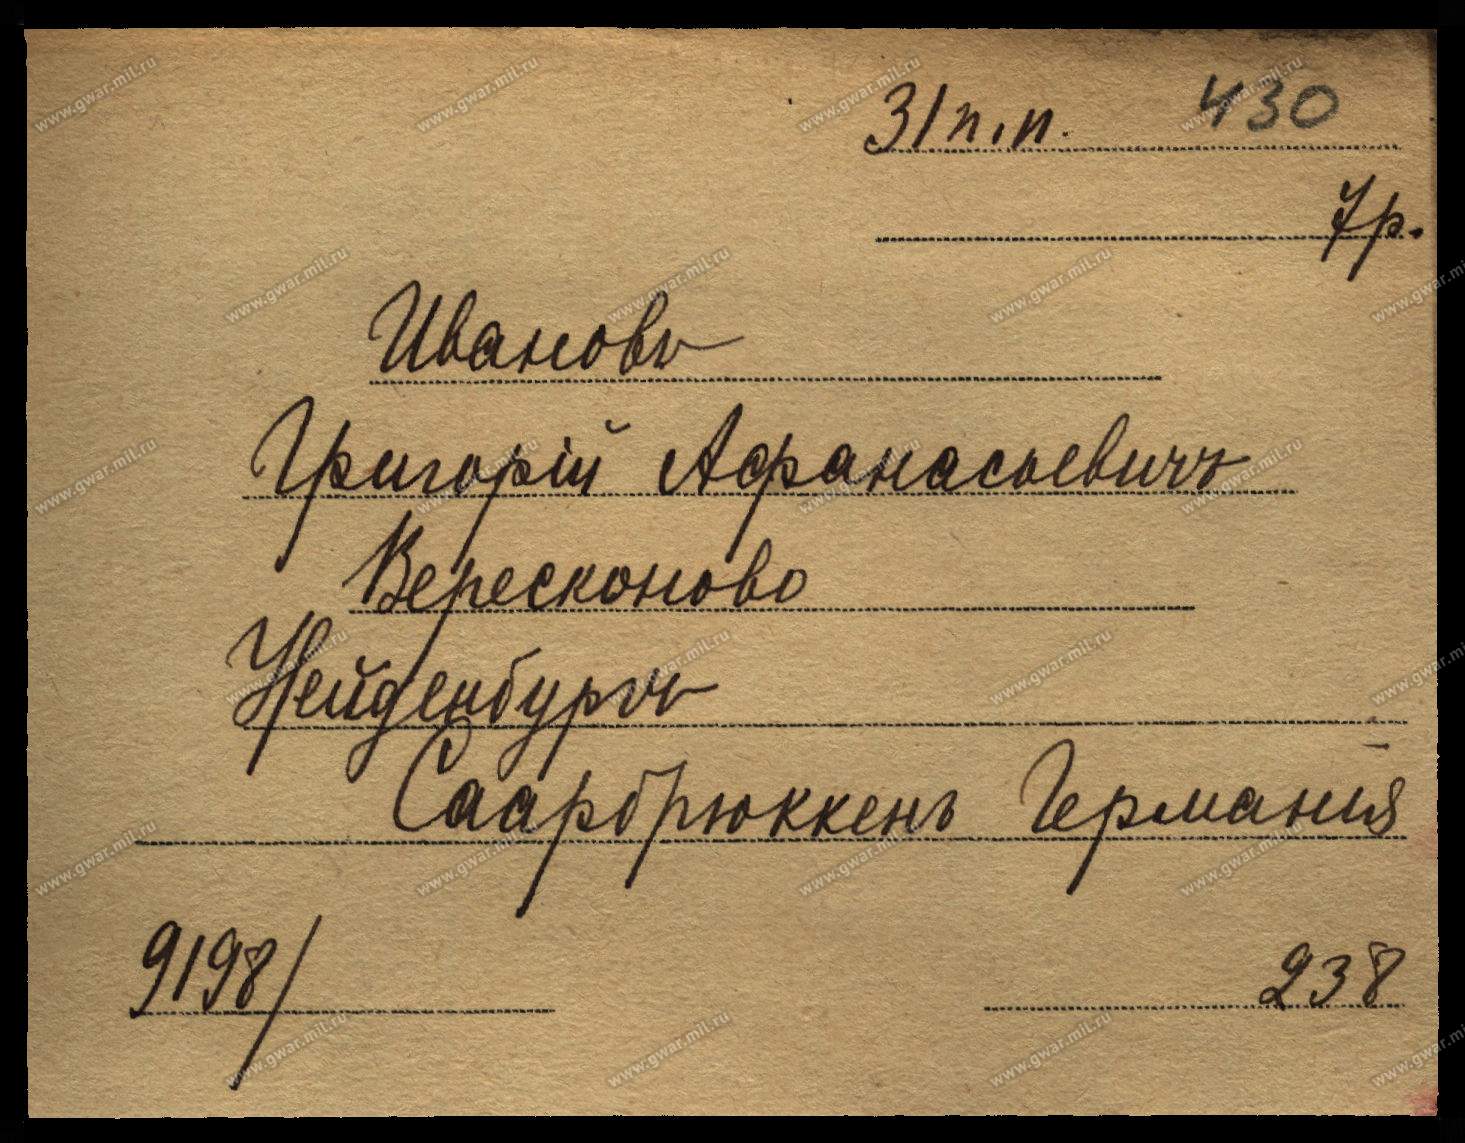 31 п.п. 430
7 р.
Ивановъ
Григорій Афанасьевичъ
Вересконово
Нейденбургъ
Саарбрюккенъ Германія
9198/
238
www.gwar.mil.ru